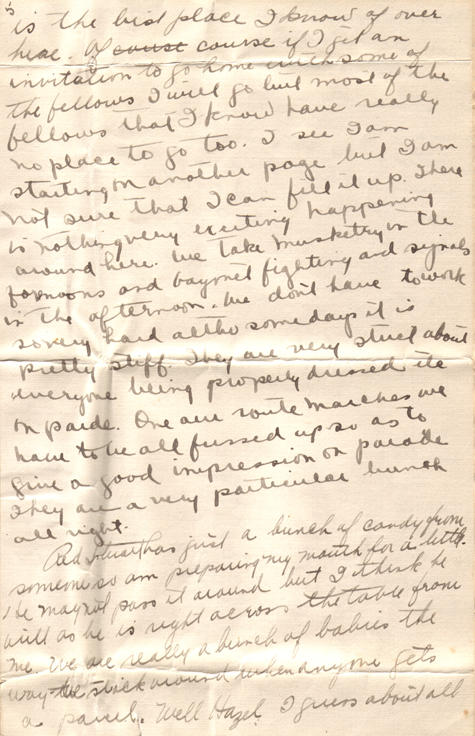 5
is the best place I know of over
here. Of couse course if I get an
invitation to go home with some of
the fellows I will go but most of the
fellows that I know have really
no place to go too. I see I am
starting on another page but I am
not sure that I can fill it up. There
is nothing very exciting happening
around here. We take musketry in the
forenoons and bayonet fighting and signals
in the afternoon. We don't have to work
so very hard altho some days it is
pretty stiff. They are very strict about
everyone being properly dressed etc
on parde. One our route marches we
have to be all fussed up so as to
give a good impression on parade
They are a very particular bunch
all right.
Red has just a bunch of candy from
someone so am preparing my mouth for a little.
He may not pass it around but I think he
will as he is right across the table from
me. We are really a bunch of babies the
way we stick around when anyone gets
a parcel. Well Hazel I guess about all